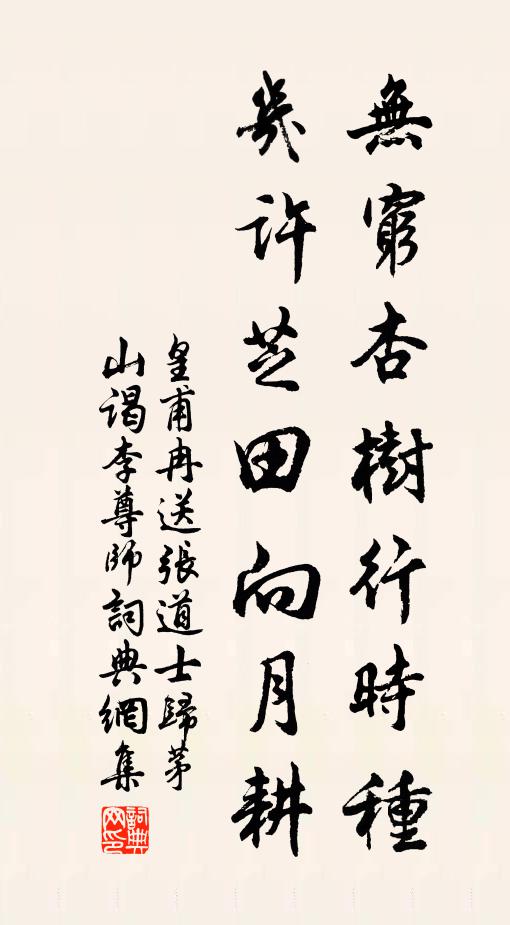 無窮杏樹行時種
幾許芝田向月耕
皇甫冉送張道士歸茅
山謁李尊師詞典網集
詞典
网印